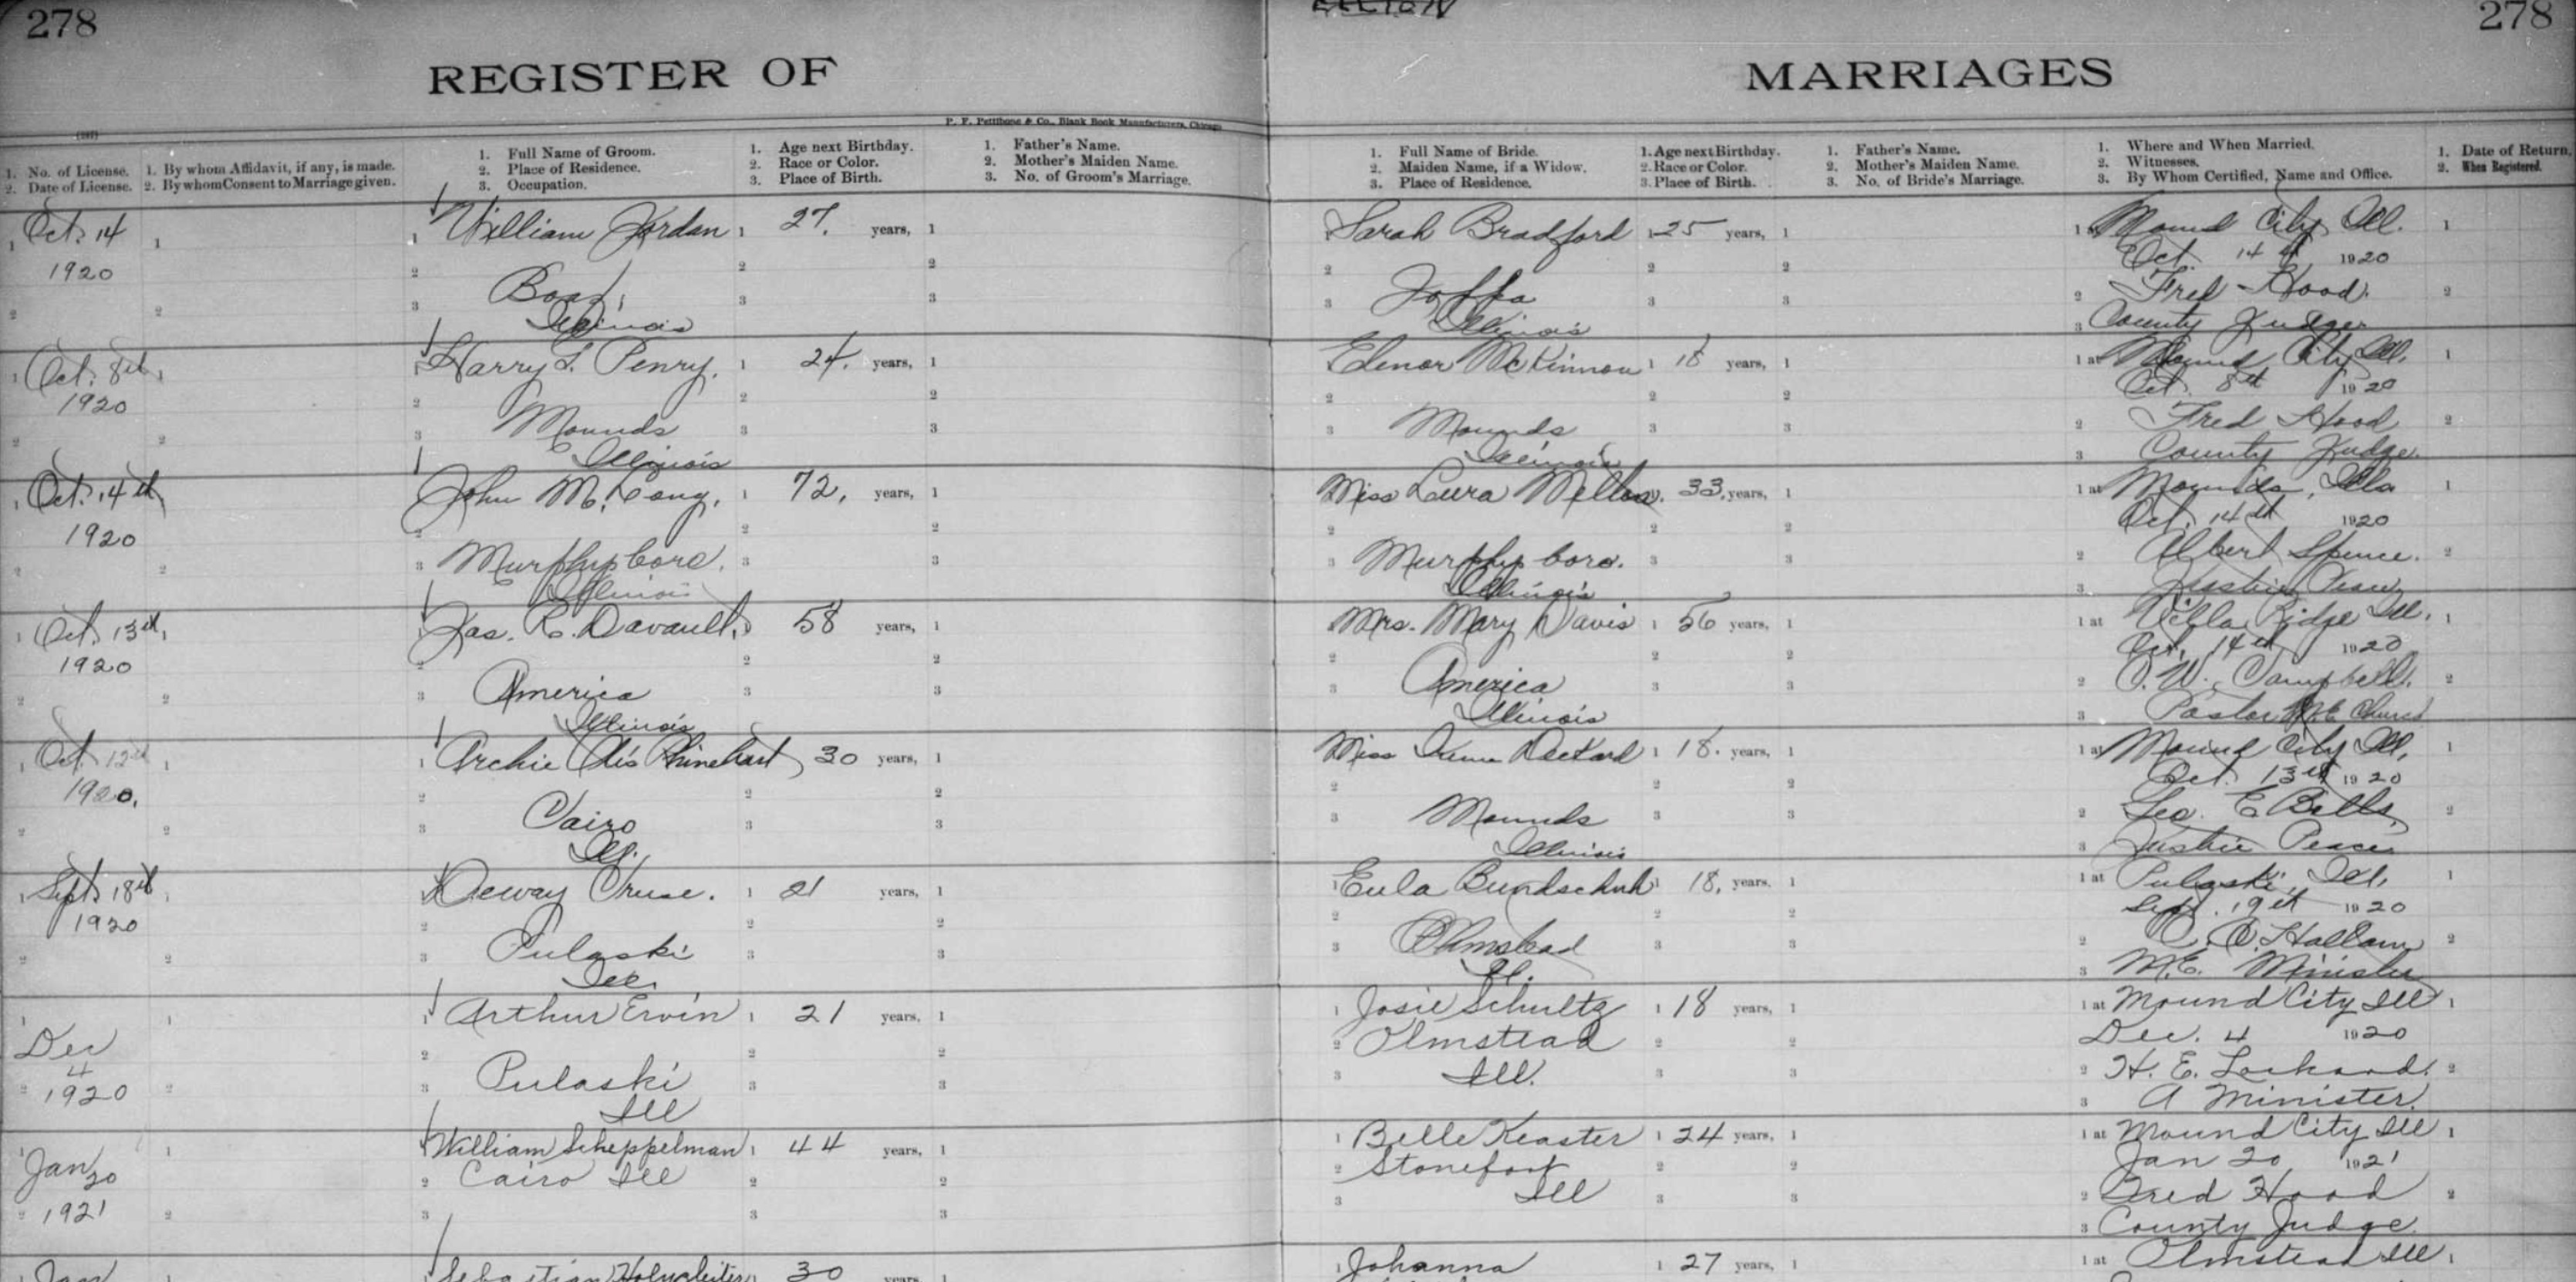 278
278
REGISTER OF
MARRIAGES
P. F. Pettibone & Co., Blank Book Manufacturers, Chicago
1. No. of License.
2. Date of License.
1. By whom Affidavit, if any, is made.
2. By whom Consent to Marriage given.
1. Full Name of Groom.
2. Place of Residence.
3. Occupation.
1. Age next Birthday.
2. Race or Color.
3. Place of Birth.
1. Father's Name.
2. Mother's Maiden Name.
3. No. of Groom's Marriage.
1. Full Name of Bride.
2. Maiden Name, if a Widow.
3. Place of Residence.
1. Age next Birthday.
2. Race or Color.
3. Place of Birth.
1. Father's Name.
2. Mother's Maiden Name.
3. No. of Bride's Marriage.
1. Where and When Married.
2. Witnesses.
3. By Whom Certified, Name and Office.
1. Date of Return.
2. When Registered.
Oct. 14
1920
William Jordan
27. years,
Illinois
Sarah Bradford
25 years,
Joppa
Illinois
Mound City Ill.
Oct. 14th 1920
Fred Hood.
County Judge.
Oct. 8th
1920
Harry L. Penry.
24. years,
Mounds
Illinois
Elenor McKinnon
18 years,
Mounds
Illinois
at Mound City Ill.
Oct. 8th 1920
Fred Hood
County Judge
Oct. 14th
1920
John M. Long.
72. years,
Murphysboro.
Illinois
Miss Lura
33. years,
Murphysboro.
Illinois
at Mounds, Ills
Oct. 14th 1920
Albert Spence.
Justice Peace
Oct. 13th
1920
Jas. R. Davault.
58 years,
America
Illinois
Mrs. Mary Davis
56 years,
America
Illinois
at Villa Ridge Ill.
Oct. 14th 1920
Campbell.
Pastor M.E. Church
Oct. 12th
1920.
Archie Otis Rhinehart
30 years,
Cairo
Ill.
Miss
18. years,
Mounds
Illinois
at Mound City Ill.
Oct. 13th 1920
Geo. E Betts
Justice Peace
Sept. 18th
1920
Dewey Cruse.
21 years,
Pulaski
Ill.
Eula Bundschuh
18. years.
Olmstead
Ill.
at Pulaski, Ill.
Sept. 19th 1920
Hallam
M.E. Minister
Dec
4
1920
Arthur Ervin
21 years.
Pulaski
Ill
Josie Schultz
18 years,
Olmstead
Ill.
at Mound City Ill
Dec. 4 1920
H. E. Lockard.
A Minister.
Jan
20
1921
William Scheppelman
44 years,
Cairo Ill
Belle Keaster
24 years,
Stonefort
Ill
at Mound City Ill
Jan 20 1921
Fred Hood
County Judge
Jan
Sebastian
30 years
Johanna
27 years,
at Olmstead Ill